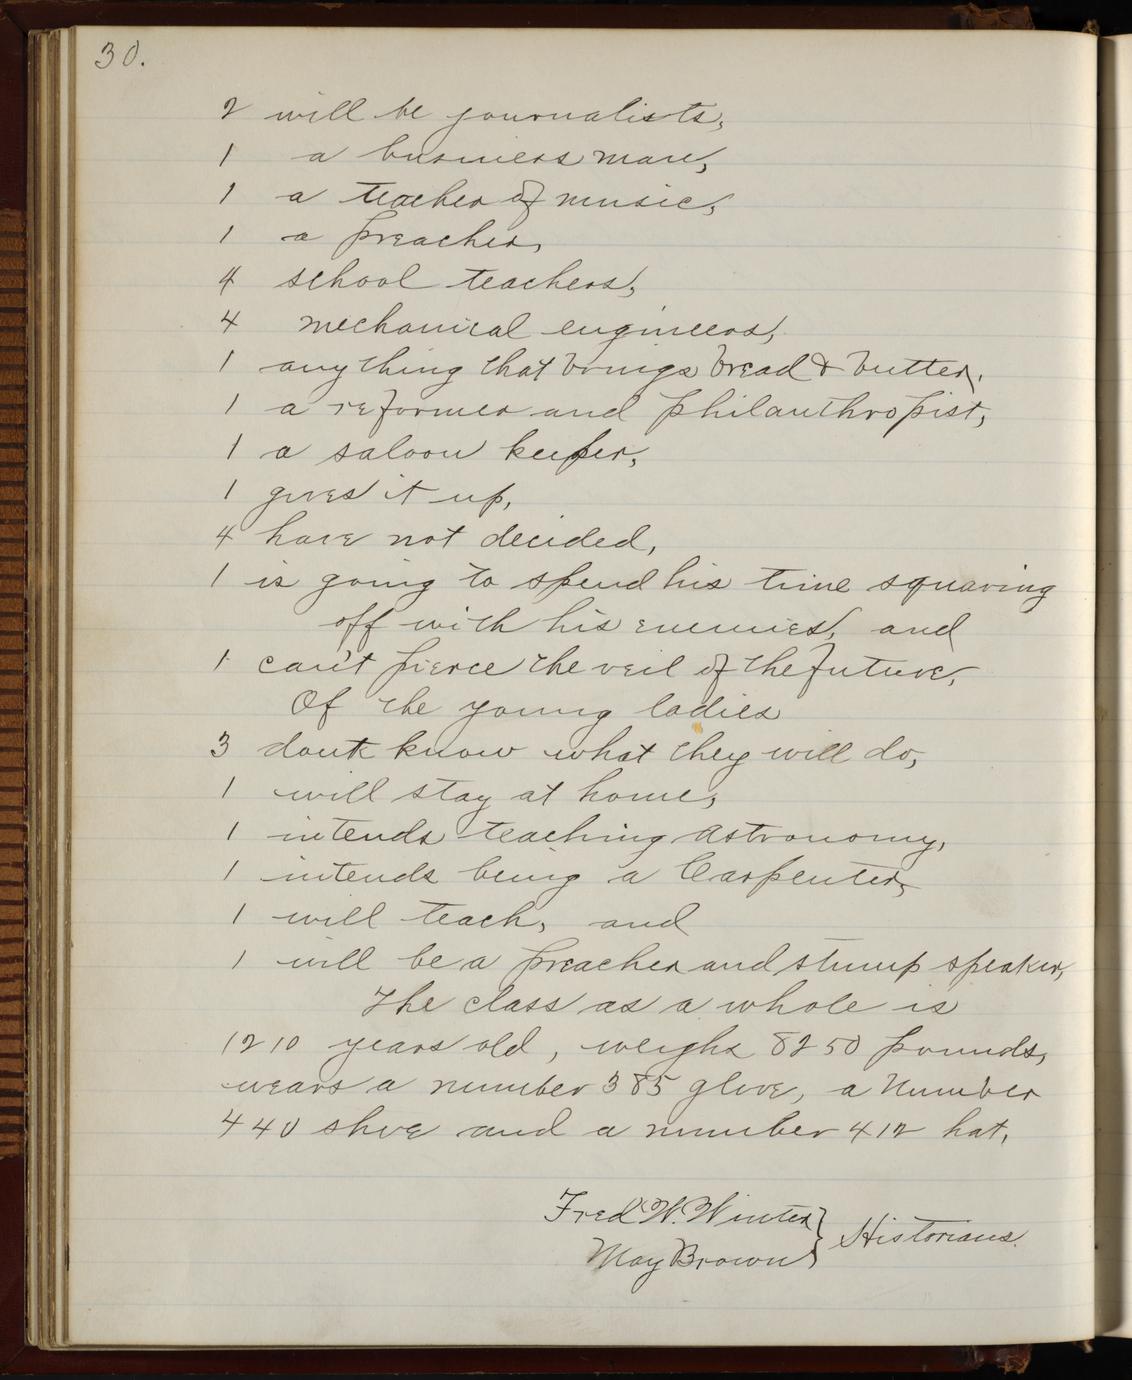 30.
2 will be journalists,
1 a business man,
1 a teacher of music,
1 a preacher,
4 school teachers,
4 mechanical engineers,
1 any thing that brings bread & butter,
1 a reformer and philanthropist,
1 a saloon keeper,
1 gives it up,
4 have not decided,
1 is going to spend his time squaring
off with his enemies, and
1 can't pierce the veil of the future,
Of the young ladies
3 dont know what they will do,
1 will stay at home,
1 intends teaching Astronomy,
1 intends being a Carpenter,
1 will teach, and
1 will be a preacher and stump speaker,
The class as a whole is
1210 years old, weighs 8250 pounds,
wears a number 385 glove, a number
440 shoe and a number 412 hat,
Fred W. Winter } Historians.
May Brown